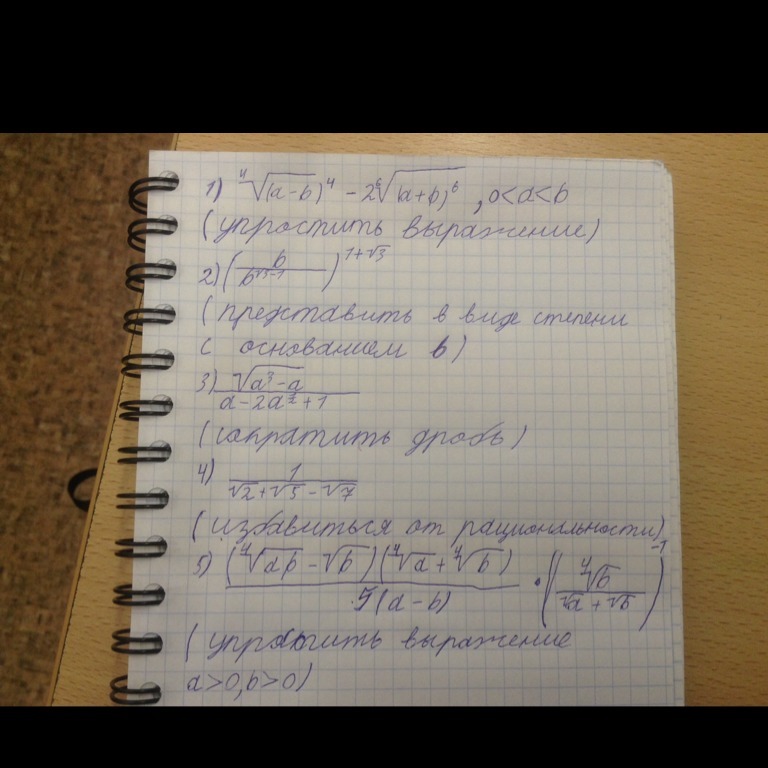 1) ⁴√(a-b)⁴ - 2⁶√(a+b)⁶, 0<a<b
(упростить выражение)
2) (b / b^(√3-1))^(1+√3)
(представить в виде степени
с основанием b)
3) √(a³-a) / (a-2a^(1/2)+1)
(сократить дробь)
4) 1 / (√2+√5-√7)
(избавиться от рациональности)
5) (⁴√(ab) - √b)(⁴√a + ⁴√b) / 5(a-b) · (⁴√b / (√a+√b))⁻¹
(упростить выражение
a>0, b>0)